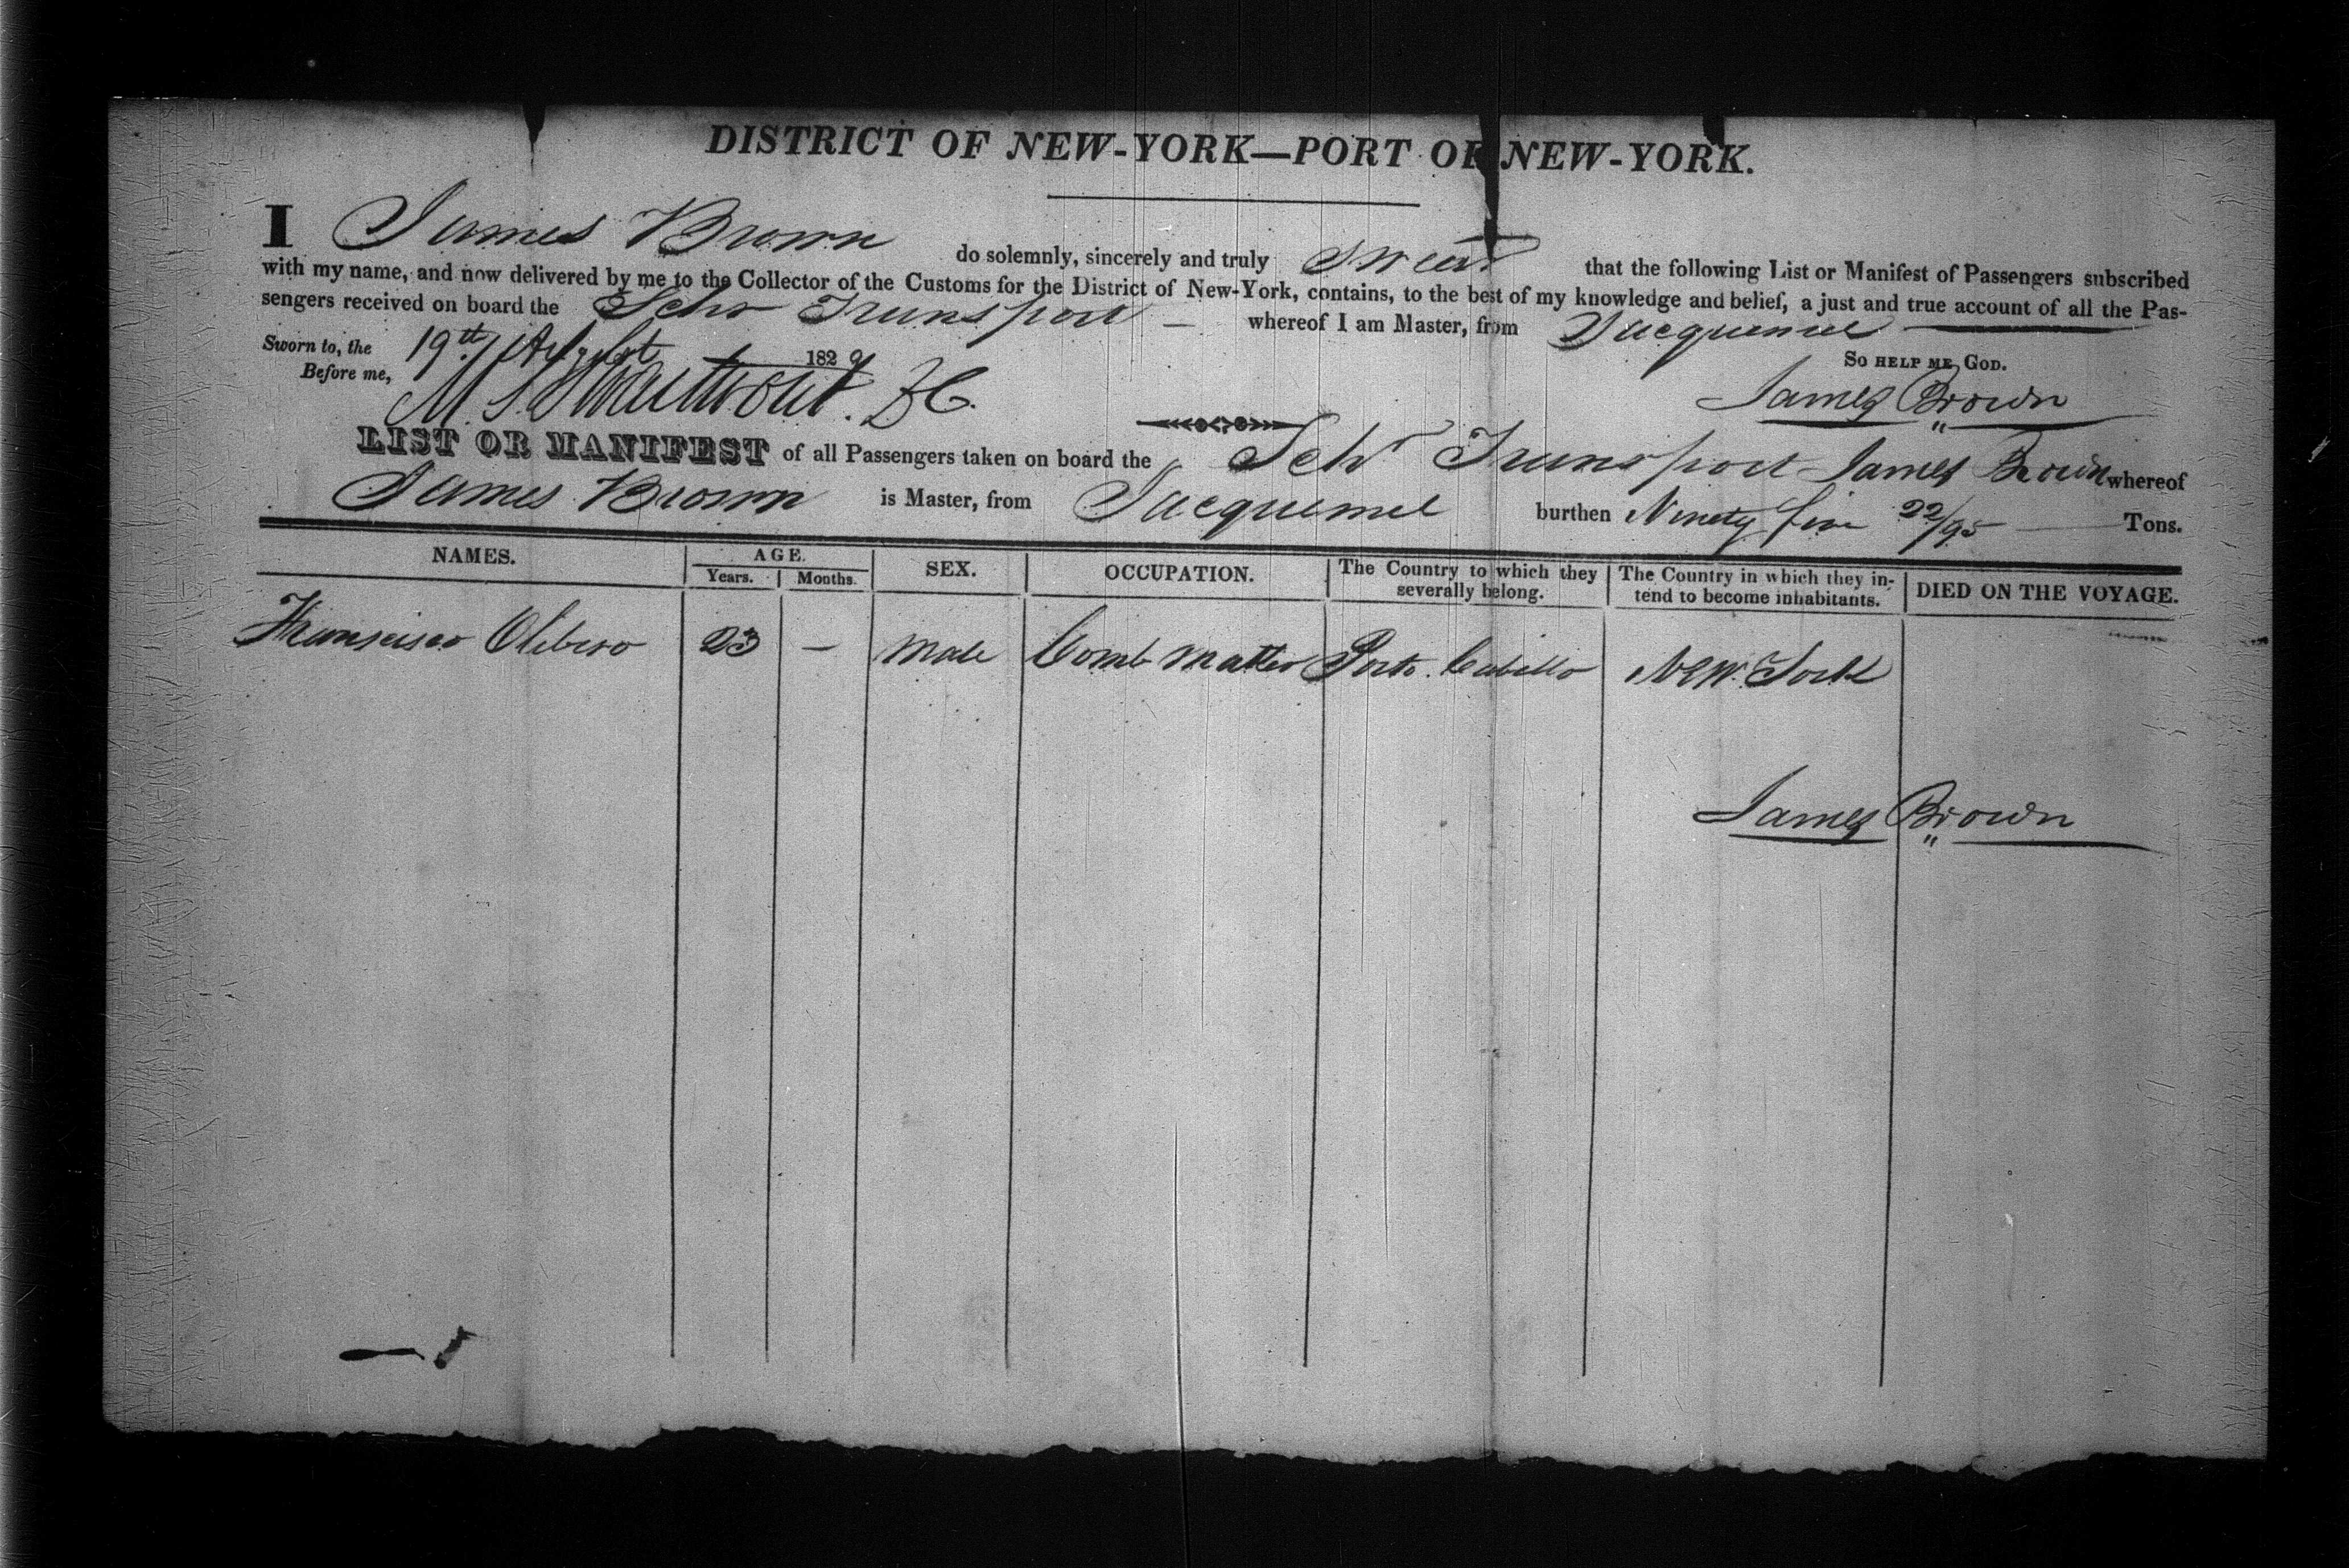 DISTRICT OF NEW-YORK—PORT OF NEW-YORK.
I James Brown do solemnly, sincerely and truly Swear that the following List or Manifest of Passengers subscribed
with my name, and now delivered by me to the Collector of the Customs for the District of New-York, contains, to the best of my knowledge and belief, a just and true account of all the Pas-
sengers received on board the Schr Transport whereof I am Master, from Jacquemel
Sworn to, the 19th August 1829
So HELP ME GOD.
Before me, M. Swartwout. DC.
James Brown
LIST OR MANIFEST of all Passengers taken on board the Schr Transport James Brown whereof
James Brown is Master, from Jacquemel burthen Ninety five 22/95 Tons.
NAMES. AGE. SEX. OCCUPATION. The Country to which they severally belong. The Country in which they in-tend to become inhabitants. DIED ON THE VOYAGE.
Years. Months.
Francisco Olibero 23 — Male Comb Porto Cabello New York
James Brown